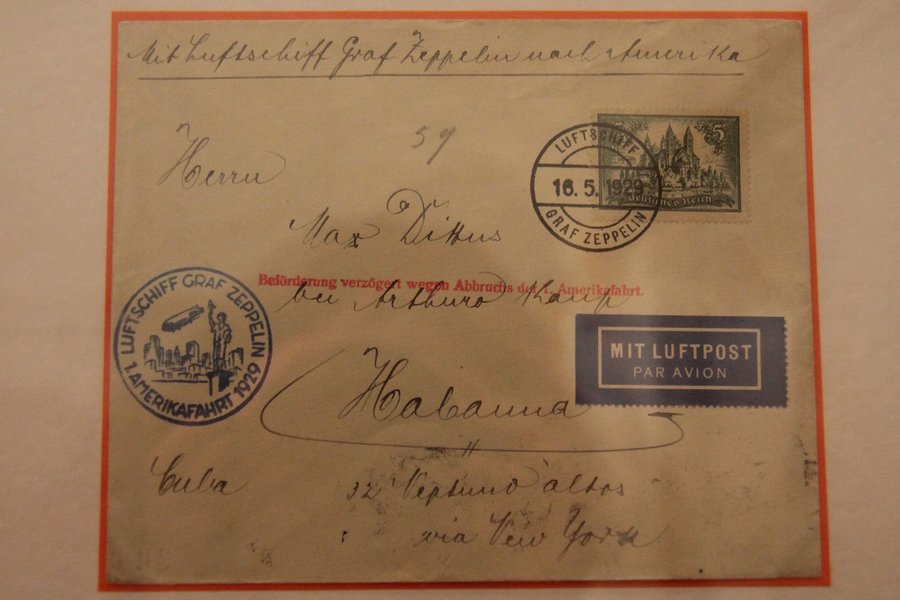 Mit Luftschiff Graf Zeppelin nach Amerika
59
5 5
Deutsches Reich
LUFTSCHIFF
16.5.1929
GRAF ZEPPELIN
Herrn
Max Dittus
Beförderung verzögert wegen Abbruchs der 1. Amerikafahrt.
bei Arthuro Kaup
LUFTSCHIFF GRAF ZEPPELIN
1. AMERIKAFAHRT 1929
MIT LUFTPOST
PAR AVION
Habanna
Cuba
32 Neptuno altos
via New York